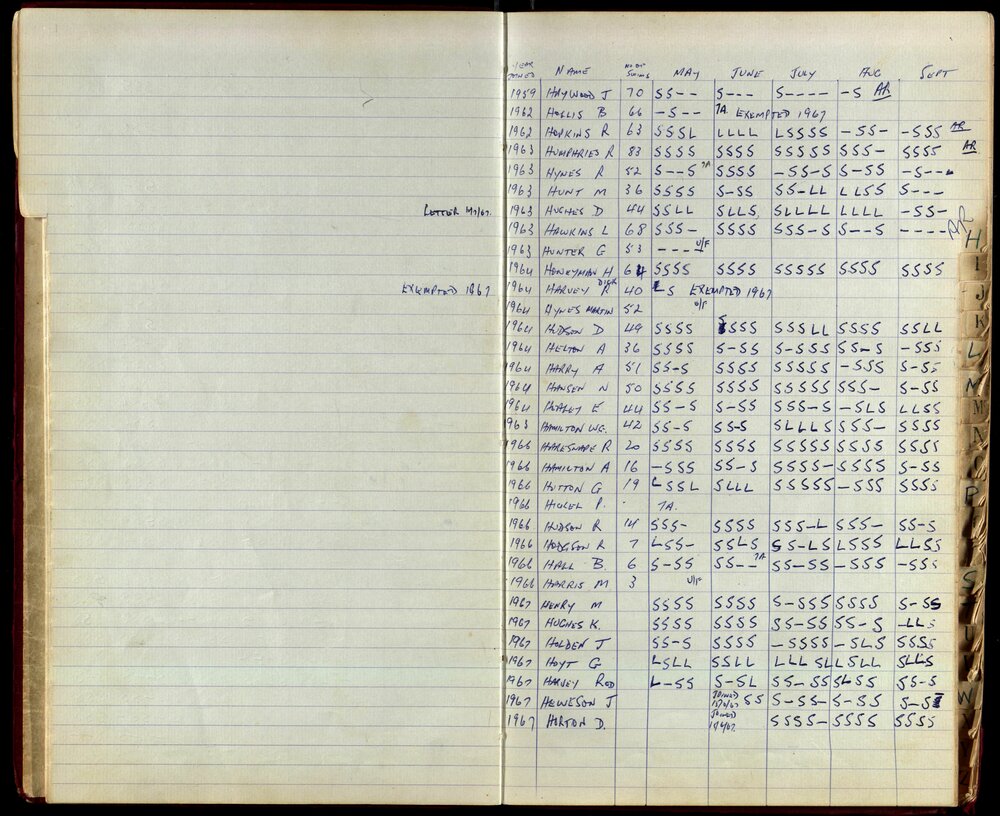 YEAR JOINED NAME NO OF SWIMS MAY JUNE JULY AUG SEPT
1959 HAYWOOD J 70 SS-- S--- S---- -S AR
1962 HOLLIS B 66 -S-- 7A EXEMPTED 1967
1962 HOPKINS R 63 SSSL LLLL LSSSS -SS- -SSS AR
1963 HUMPHRIES R 83 SSSS SSSS SSSSS SSS- SSSS AR
1963 HYNES R 52 S--S 7A SSSS -SS-S S-SS -S---
1963 HUNT M 36 SSSS S-SS SS-LL LLSS S---
LETTER 1963 HUGHES D 44 SSLL SLLS SLLLL LLLL -SS-
1963 HAWKINS L 68 SSS- SSSS SSS-S S--S ---- AR
1963 HUNTER G 53 ---- U/F
1964 HONEYMAN H 64 SSSS SSSS SSSSS SSSS SSSS
EXEMPTED 1967 1964 HARVEY DICK 40 LS EXEMPTED 1967
1964 HYNES MARTIN 52 U/F
1964 HUDSON D 49 SSSS SSSS SSSLL SSSS SSLL
1964 HELTON A 36 SSSS S-SS S-SSS SS-S -SSS
1964 HARRY A 51 SS-S SSSS SSSSS -SSS S-SS
1964 HANSEN N 50 SSSS SSSS SSSSS SSS- S-SS
1964 E 44 SS-S S-SS SSS-S -SLS LLSS
1963 HAMILTON WG. 42 SS-S SS-S SLLLS SSS- SSSS
1966 HARESNAPE R 20 SSSS SSSS SSSSS SSSS SSSS
1966 HAMILTON A 16 -SSS SS-S SSSS- SSSS S-SS
1966 HUTTON G 19 LSSL SLLL SSSSS -SSS SSSS
1966 P. 7A.
1966 HUDSON R 14 SSS- SSSS SSS-L SSS- SS-S
1966 HODGSON R 7 LSS- SSLS SS-LS LSSS LLSS
1966 HALL B. 6 S-SS SS-- 7A SS-SS -SSS -SSS
1966 HARRIS M 3 U/F
1967 HENRY M SSSS SSSS S-SSS SSSS S-SS
1967 HUGHES K. SSSS SSSS SS-SS SS-S -LLS
1967 HOLDEN J SS-S SSSS -SSSS -SLS SSSS
1967 HOYT G LSLL SSLL LLLSL LSLL SLLS
1967 HARVEY ROD L-SS S-SL SS-SS SLSS SS-S
1967 HEWESON J JOINED SS S-SS- S-SS S-S
1967 HORTON D. JOINED SSSS- SSSS SSSS
H
I
J
K
L
M
M
N
O
P
S
U
W